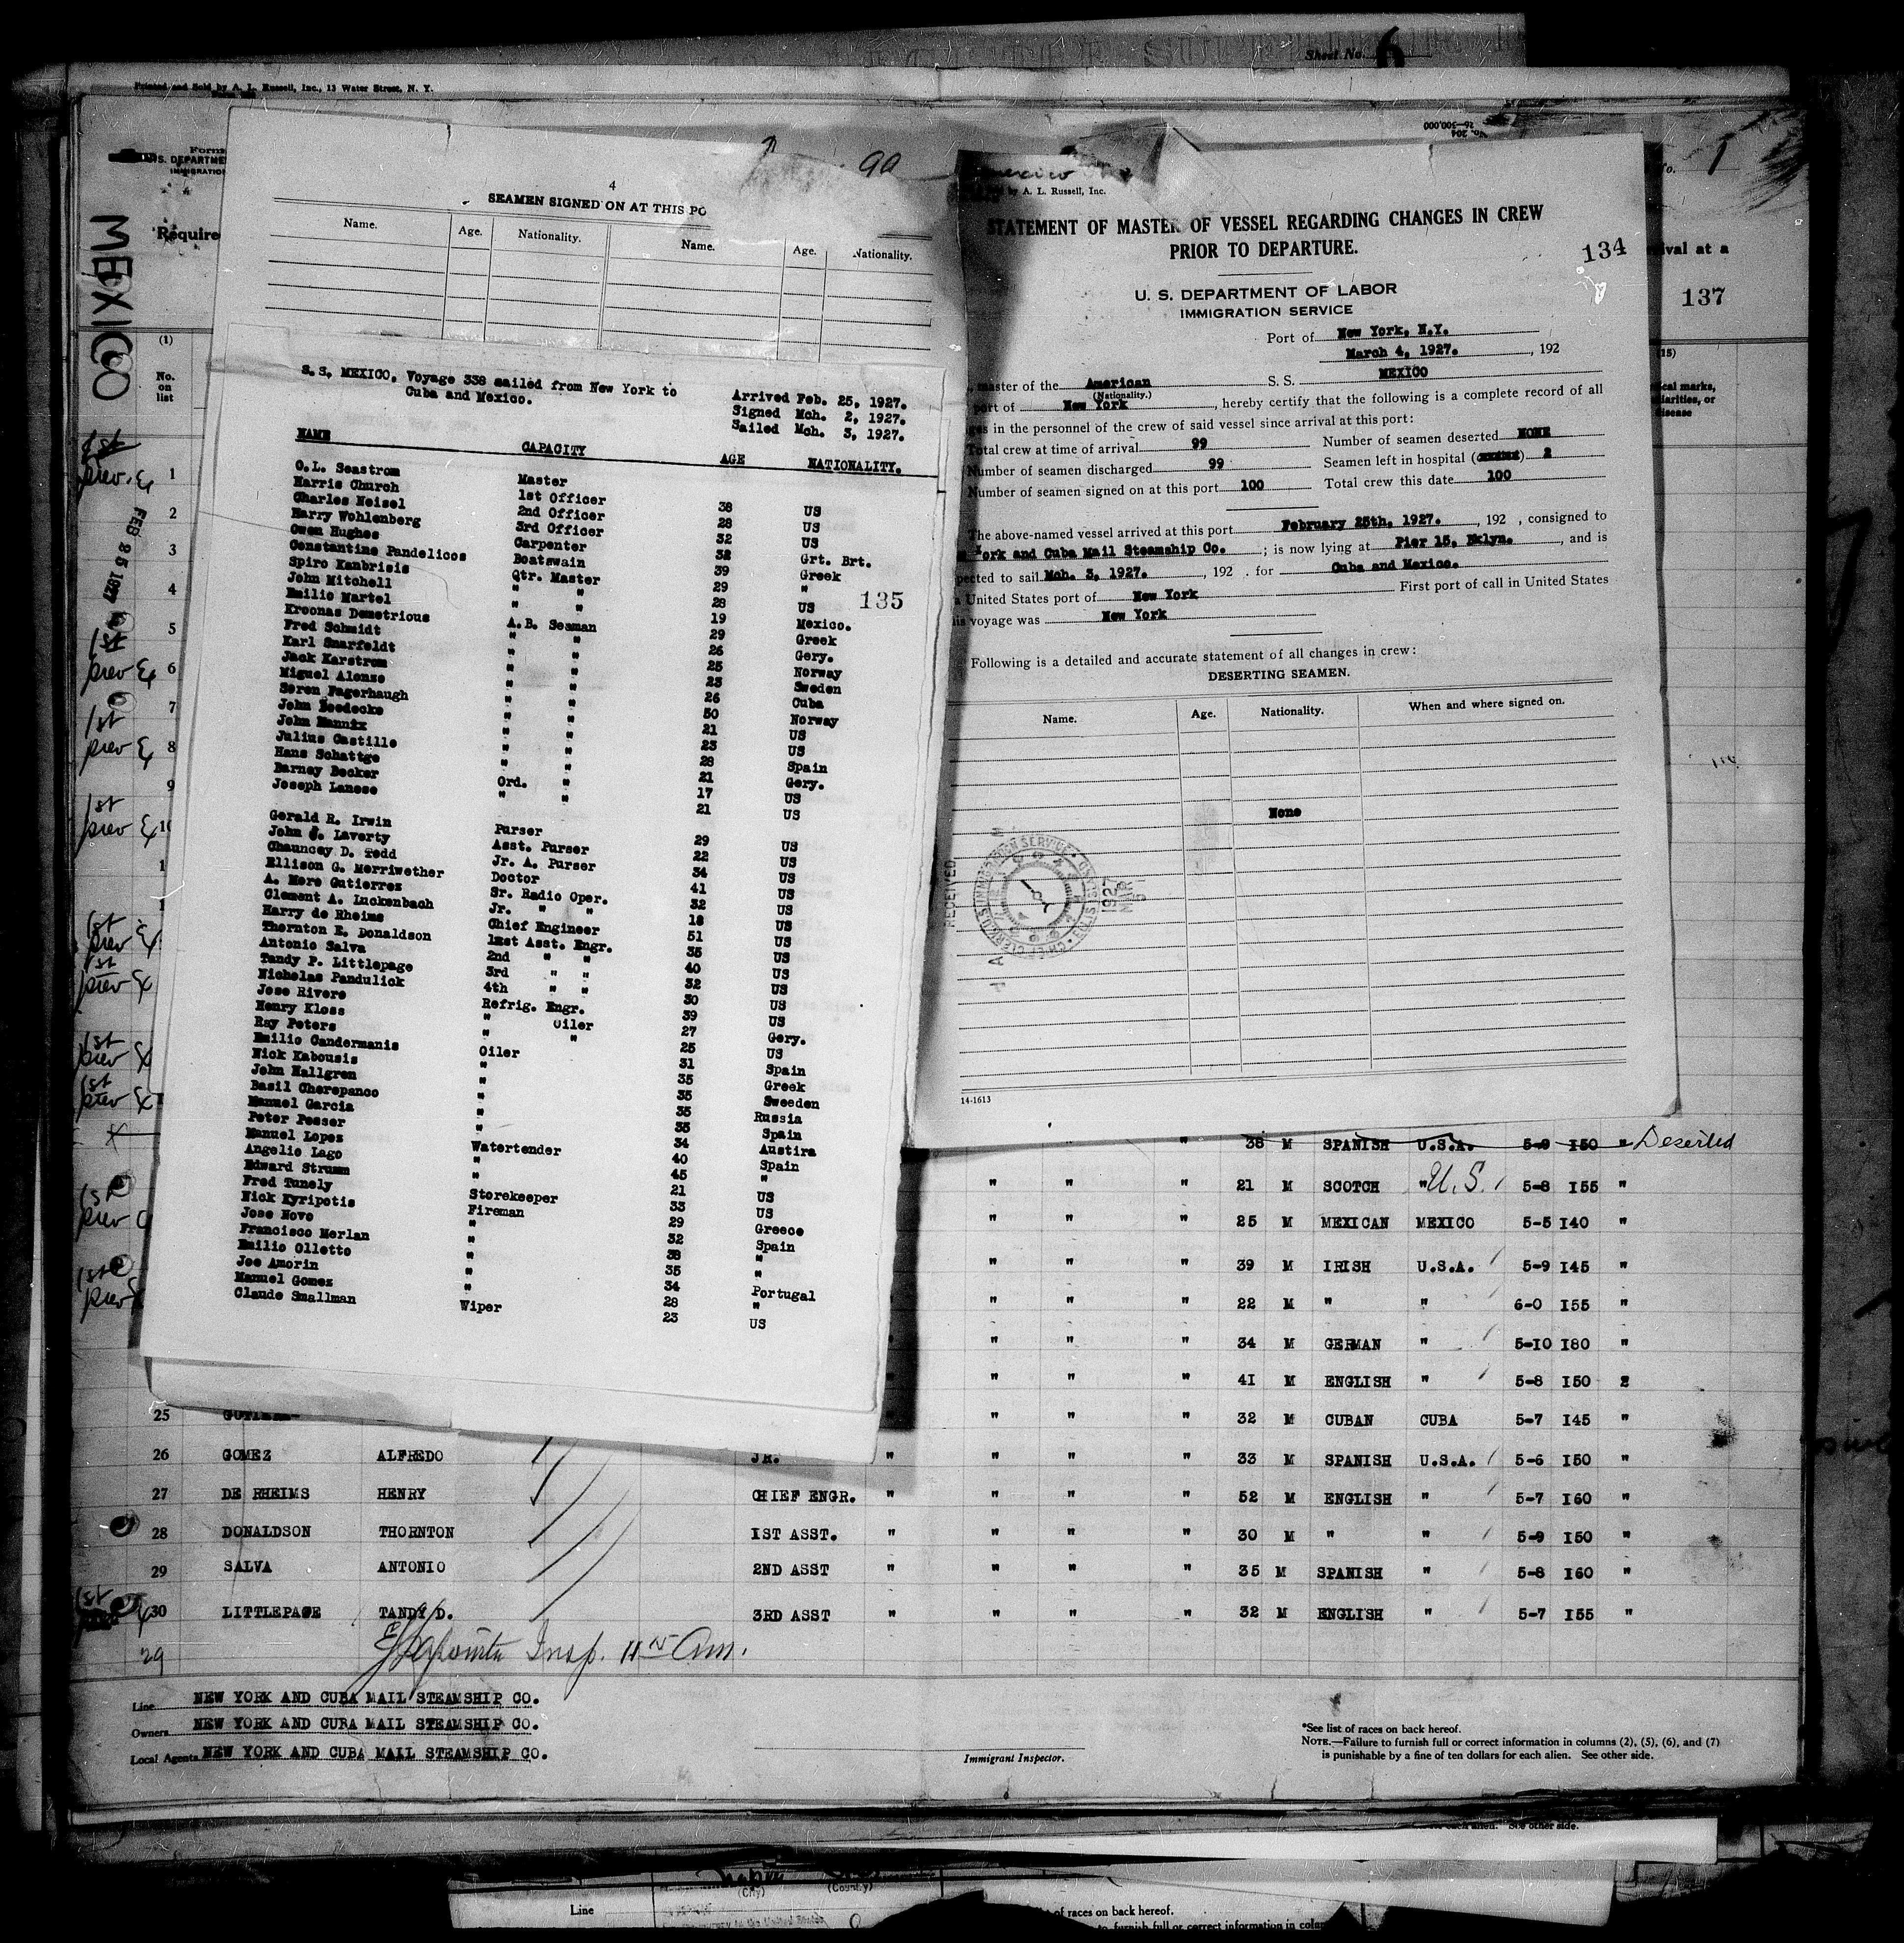 Sheet No. 6
Printed and Sold by A. L. Russell, Inc., 13 Water Street, N. Y.
Form
U.S. DEPARTME
IMMIGRATION
Require
MEXICO
(1)
No.
on
list
FEB 25 1927
4
90
SEAMEN SIGNED ON AT THIS PO
Name. Age. Nationality. Name. Age. Nationality.
S.S. MEXICO, Voyage 338 sailed from New York to
Cuba and Mexico.
Arrived Feb. 25, 1927.
Signed Mch. 2, 1927.
Sailed Mch. 3, 1927.
NAME CAPACITY AGE NATIONALITY.
O.L. Seastrom Master
Harris Church 1st Officer 38 US
Charles Neisel 2nd Officer 28 US
Harry Wohlenberg 3rd Officer 32 US
Owen Hughes Carpenter 32 Grt. Brt.
Constantine Pandelicos Boatswain 39 Greek
Spiro Kanbrisis Qtr. Master 29 "
John Mitchell " " 28 US
Emilio Martel " " 19 Mexico.
Kroonas Demetrious " " 29 Greek
Fred Schmidt A.B. Seaman 26 Gery.
Karl Smarfeldt " " 25 Norway
Jack Karstrom " " 23 Sweden
Miguel Alonzo " " 26 Cuba
Soren Fagerhaugh " " 50 Norway
John Boedecke " " 21 US
John Mannix " " 23 US
Julius Castillo " " 28 Spain
Hans Schattge " " 21 Gery.
Barney Becker Ord. " 17 US
Joseph Lanese " " 21 US
Gerald R. Irwin Purser 29 US
John J. Laverty Asst. Purser 22 US
Chauncey D. Todd Jr. A. Purser 34 US
Ellison G. Merriwether Doctor 41 US
A. Mere Gutierrez Sr. Radio Oper. 32 US
Clement A. Luckenbach Jr. " " 18 US
Harry de Rheims Chief Engineer 51 US
Thornton E. Donaldson 1st Asst. Engr. 35 US
Antonio Salva 2nd " " 40 US
Tandy P. Littlepage 3rd " " 32 US
Nicholas Pandulick 4th " " 30 US
Jose Rivero Refrig. Engr. 39 US
Henry Kloss " Oiler 27 Gery.
Ray Peters " " 25 US
Emilio Candermanis Oiler 31 Spain
Nick Kabousis " 35 Greek
John Hallgren " 35 Sweden
Basil Cherepanco " 35 Russia
Manuel Garcia " 35 Spain
Peter Posser " 34 Austira
Manuel Lopez Watertender 40 Spain
Angelio Lago " 45 "
Edward Strumm " 21 US
Fred Tunely Storekeeper 33 US
Nick Kyripotis Fireman 29 Greece
Jose Novo " 32 Spain
Francisco Merlan " 38 "
Emilio Olletto " 35 "
Joe Amorin " 34 Portugal
Manuel Gomez " 28 "
Claude Smallman Wiper 23 US
135
by A. L. Russell, Inc.
STATEMENT OF MASTER OF VESSEL REGARDING CHANGES IN CREW
PRIOR TO DEPARTURE.
134
U. S. DEPARTMENT OF LABOR
IMMIGRATION SERVICE
Port of New York, N.Y.
March 4, 1927. , 192
, master of the American S. S. MEXICO
(Nationality.)
port of New York , hereby certify that the following is a complete record of all
ges in the personnel of the crew of said vessel since arrival at this port:
Total crew at time of arrival 99 Number of seamen deserted NONE
Number of seamen discharged 99 Seamen left in hospital ( ) 2
Number of seamen signed on at this port 100 Total crew this date 100
The above-named vessel arrived at this port February 25th, 1927. , 192 , consigned to
York and Cuba Mail Steamship Co. ; is now lying at Pier 15, Bklyn. , and is
pected to sail Mch. 3, 1927. , 192 . for Cuba and Mexico.
a United States port of New York First port of call in United States
his voyage was New York
Following is a detailed and accurate statement of all changes in crew:
DESERTING SEAMEN.
Name. Age. Nationality. When and where signed on.
None
RECEIVED
14-1613
No. 1
val at a
137
(15)
ical marks,
liarities, or
disease
38 M SPANISH U.S.A. 5-9 150 " Deserted
" " " 21 M SCOTCH " U.S. 5-8 155 "
" " " 25 M MEXICAN MEXICO 5-5 140 "
" " " 39 M IRISH U.S.A. 5-9 145 "
" " " 22 M " " 6-0 155 "
" " " 34 M GERMAN " 5-10 180 "
" " " 41 M ENGLISH " 5-8 150 "
25 " " " 32 M CUBAN CUBA 5-7 145 "
26 GOMEZ ALFREDO JR. " " " " 33 M SPANISH U.S.A. 5-6 150 "
27 DE RHEIMS HENRY CHIEF ENGR. " " " " 52 M ENGLISH " 5-7 160 "
28 DONALDSON THORNTON 1ST ASST. " " " " 30 M " " 5-9 150 "
29 SALVA ANTONIO 2ND ASST " " " " 35 M SPANISH " 5-8 160 "
30 LITTLEPAGE TANDY D. 3RD ASST " " " " 32 M ENGLISH " 5-7 155 "
29
Insp.
Line NEW YORK AND CUBA MAIL STEAMSHIP CO.
Owners NEW YORK AND CUBA MAIL STEAMSHIP CO.
Local Agents NEW YORK AND CUBA MAIL STEAMSHIP CO.
Immigrant Inspector.
*See list of races on back hereof.
NOTE.—Failure to furnish full or correct information in columns (2), (5), (6), and (7)
is punishable by a fine of ten dollars for each alien. See other side.
each alien. See other side.
(City) (County)
Line
of races on back hereof.
to furnish full or correct information in colum